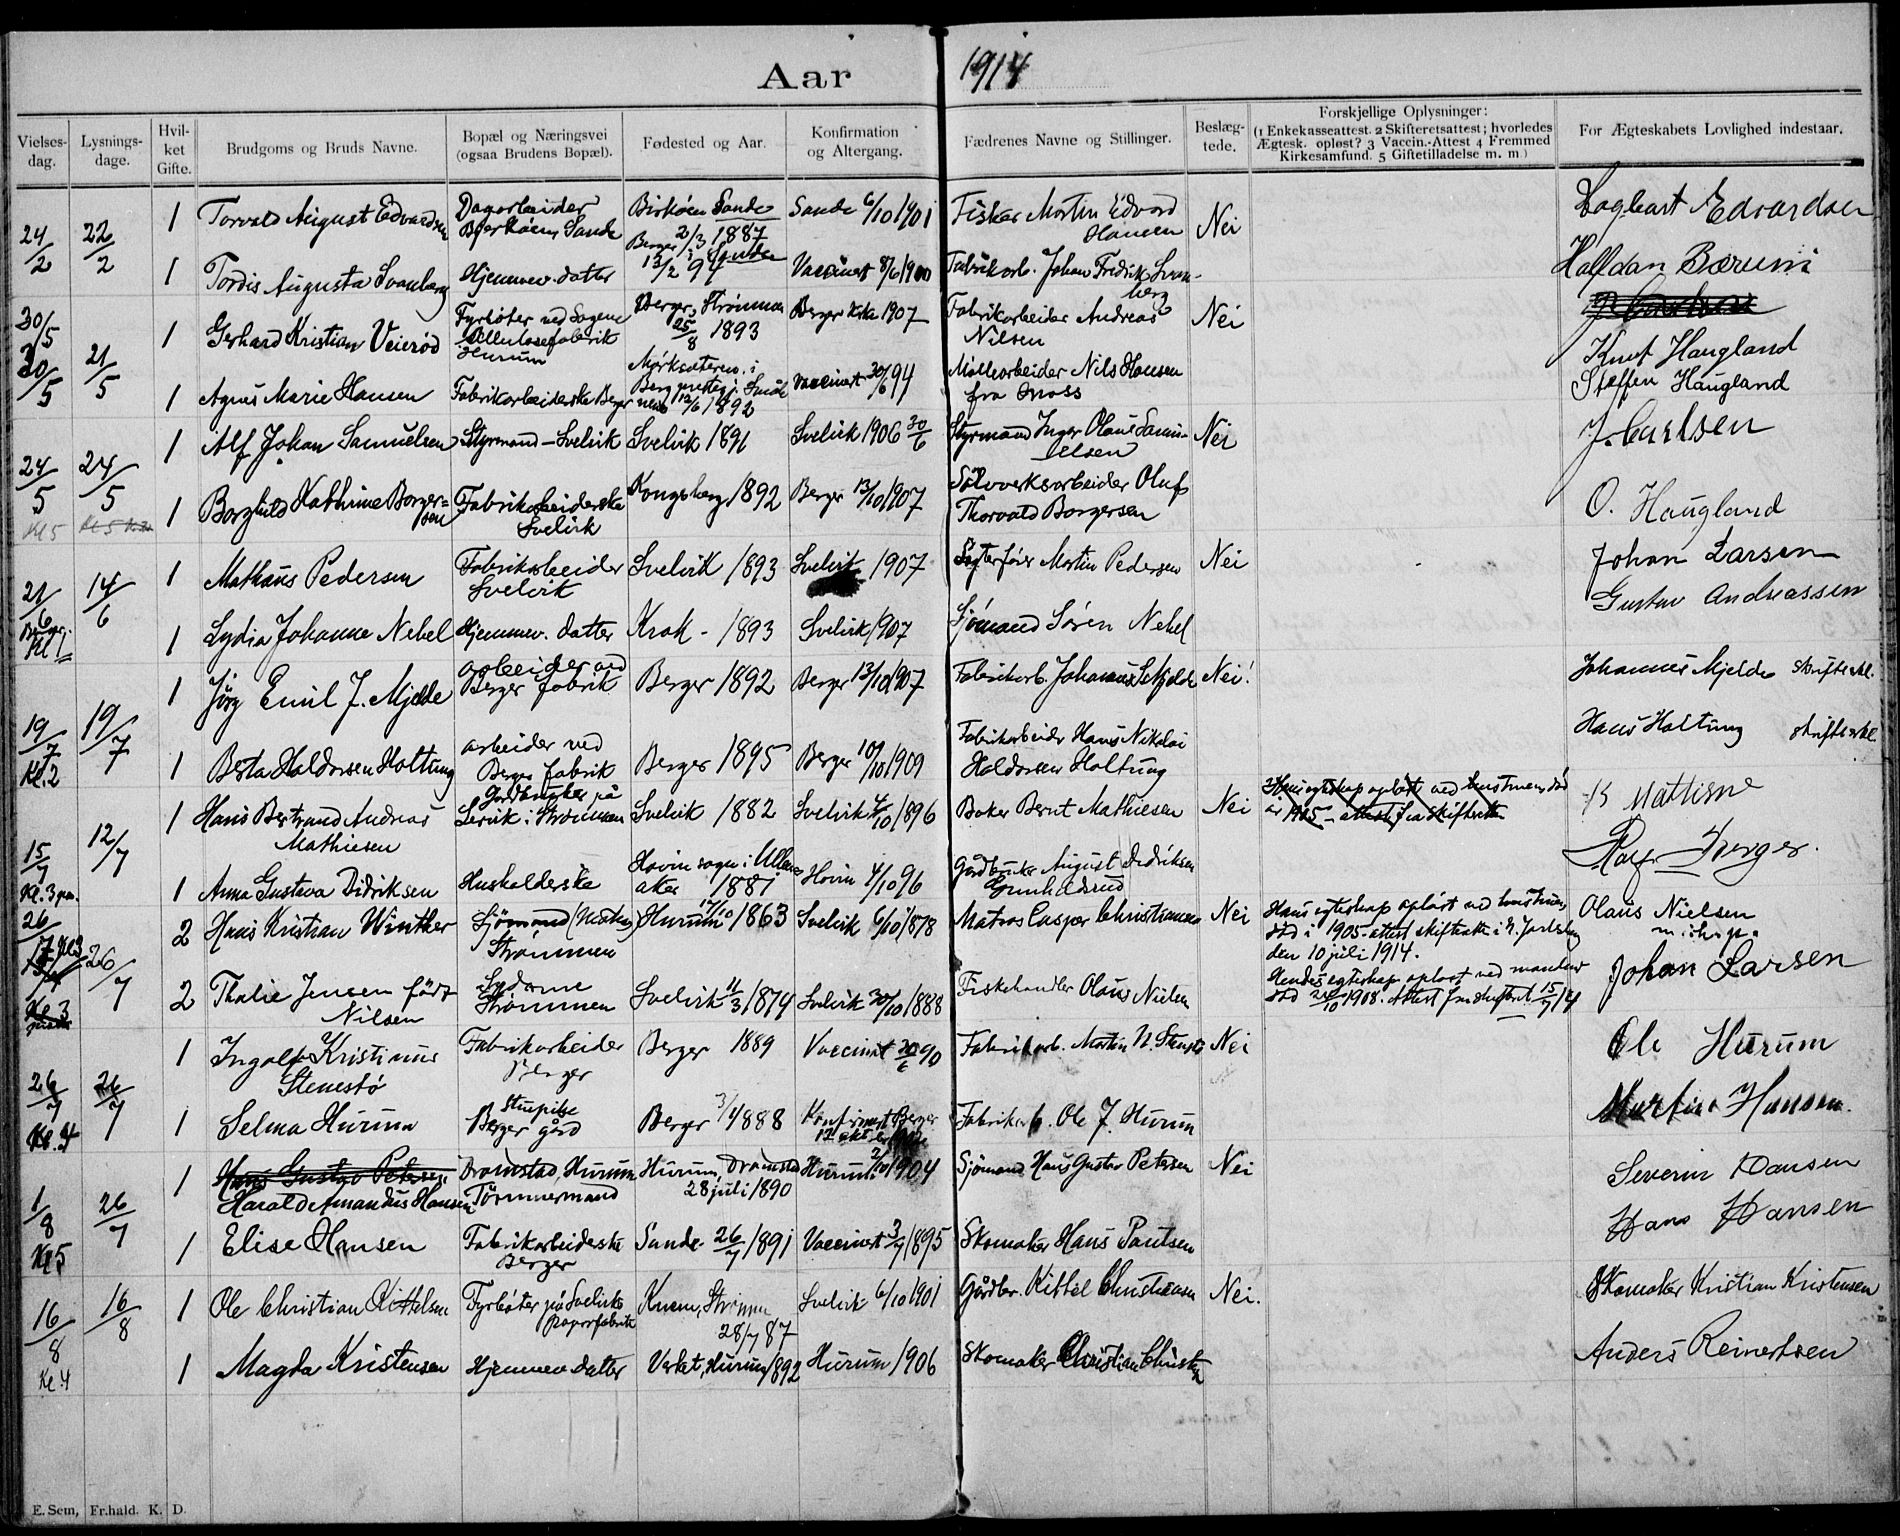 Aar 1914
Vielses-dag. Lysnings-dage. Hvil-ket Gifte. Brudgoms og Bruds Navne. Bopæl og Næringsvei (ogsaa Brudens Bopæl). Fødested og Aar. Konfirmation og Altergang. Fædrenes Navne og Stillinger. Beslæg-tede. Forskjellige Oplysninger: (1 Enkekasseattest. 2 Skifteretsattest; hvorledes Ægtesk. opløst? 3 Vaccin.-Attest 4 Fremmed Kirkesamfund. 5 Giftetilladelse m. m.) For Ægteskabets Lovlighed indestaar.
24/2 22/2 1 Torvald August Edvardsen Dagarbeider Sande Birköen Sande 2/3 1887 Sande 6/10 1901 Fisker Martin Edvard Hansen Nei Dagbart Edvardsen
1 Tordis Augusta Svanberg Hjemmev. datter Berger i Sande 13/2 94 Vaccinert 8/6 1900 Fabrikarb. Johan Fredrik Svanberg Halfdan Bærum
30/5 1 Gerhard Kristian Veierød Fyrböter ved Sagene Cellulosefabrik Hurum Berger, Strömmen 25/8 1893 Berger Krke 1907 Fabrikarbeider Andreas Nilsen Nei
Knut Haugland
30/5 21/5 1 Agnes Marie Hansen Fabrikarbeiderske Berger 12/6 1892 Vaccinert 30/6 94 Möllearbeider Nils Hansen fra Moss Steffen Haugland
1 Alf Johan Samuelsen Styrmand - Svelvik Svelvik 1891 Svelvik 1906 30/6 Styrmand Inger Olaus Samuelsen Nei J. Carlsen
24/5 24/5 Kl 5 1 Borghild Kathrine Borgersen Fabrikarbeiderske Svelvik Kongsberg 1892 Berger 13/10 1907 Sölvverksarbeider Oluf Thorvald Borgersen O. Haugland
1 Mathæus Pedersen Fabrikarbeider Svelvik Svelvik 1893 Svelvik 1907 Martin Pedersen Nei Johan Larsen
21/6 14/6 Kl 1 Gustav Andreassen
1 Lydia Johanne Nebel Hjemmev. datter Krok - 1893 Svelvik 1907 Sjömand Sören Nebel
1 Jörg Emil J. Mjelde arbeider ved Berger fabrik Berger 1892 Berger 13/10 1907 Fabrikarb. Johannes Mjelde Nei! Johannes Mjelde skrifterkl.
19/7 Kl. 2 19/7 1 Berta Haldorsen Holtung arbeider ved Berger fabrik Berger 1895 Berger 10/10 1909 Fabrikarbeider Hans Nikolai Haldorsen Holtung Hans Holtung skrifterkl.
1 Hans Bertrand Andreas Mathiesen Gårdbruker på Strömmen Svelvik 1882 Svelvik 4/10 1896 Baker Bernt Mathiesen Nei
15/7 Kl. 3 12/7 1 Anna Gustava Didriksen Husholderske Hovin sogn i Ullensaker 1881 Hovin 4/10 96 Gårdbruker August Didriksen
26/7 Kl 3 26/7 2 Hans Kristian Winther Sjömand Strömmen Hurum 17/10 1863 Svelvik 6/10 1878 Matros Casper Christiansen Nei Hans egteskap oplöst ved hustruens död i 1905. attest skifteret i N. Jarlsberg den 10 juli 1914. Olaus Nielsen
2 Thalie Jensen född Nilsen Strömmen Svelvik 11/3 1874 Svelvik 30/10 1888 Fiskehandler Olaus Nielsen Hendes egteskap oplöst ved mandens död 24/10 1908. Attest fra skifteret 15/7 14 Johan Larsen
1 Ingolf Kristinus Stenestö Fabrikarbeider Berger Berger 1889 Vaccinert 30/6 90 Fabrikarb. Martin N. Nei Ole Hurum
26/7 Kl. 4 26/7 1 Selma Hurum Stuepike Berger gård Berger 3/4 1888 Konfirmert Berger Fabrikarb. Ole J. Hurum Martin Hansen.
1 Hans Gustav Petersen Harald Amandus Hansen Dramstad, Hurum Tömmermand Hurum, Dramstad 28 juli 1890 Hurum 2/10 1904 Sjömand Hans Gustav Petersen Nei Severin Hansen
1/8 Kl 5 26/7 1 Elise Hansen Fabrikarbeiderske Berger Sande 26/7 1891 Vaccinert 3/7 1895 Skomaker Hans Paulsen Hans Hansen
1 Ole Christian Kittelsen Fyrböter på Svelviks papirfabrik Knem, Strömm 28/7 87 Svelvik 6/10 1901 Gårdbr. Kittel Christiansen Nei. Skomaker Kristian Kristensen
16/8 Kl 4 16/8 1 Magda Kristensen Hjemmev datter Verket, Hurum 1892 Hurum 1906 Skomaker Christian Anders Reinertsen
E. Sem, Fr.hald. K. D.